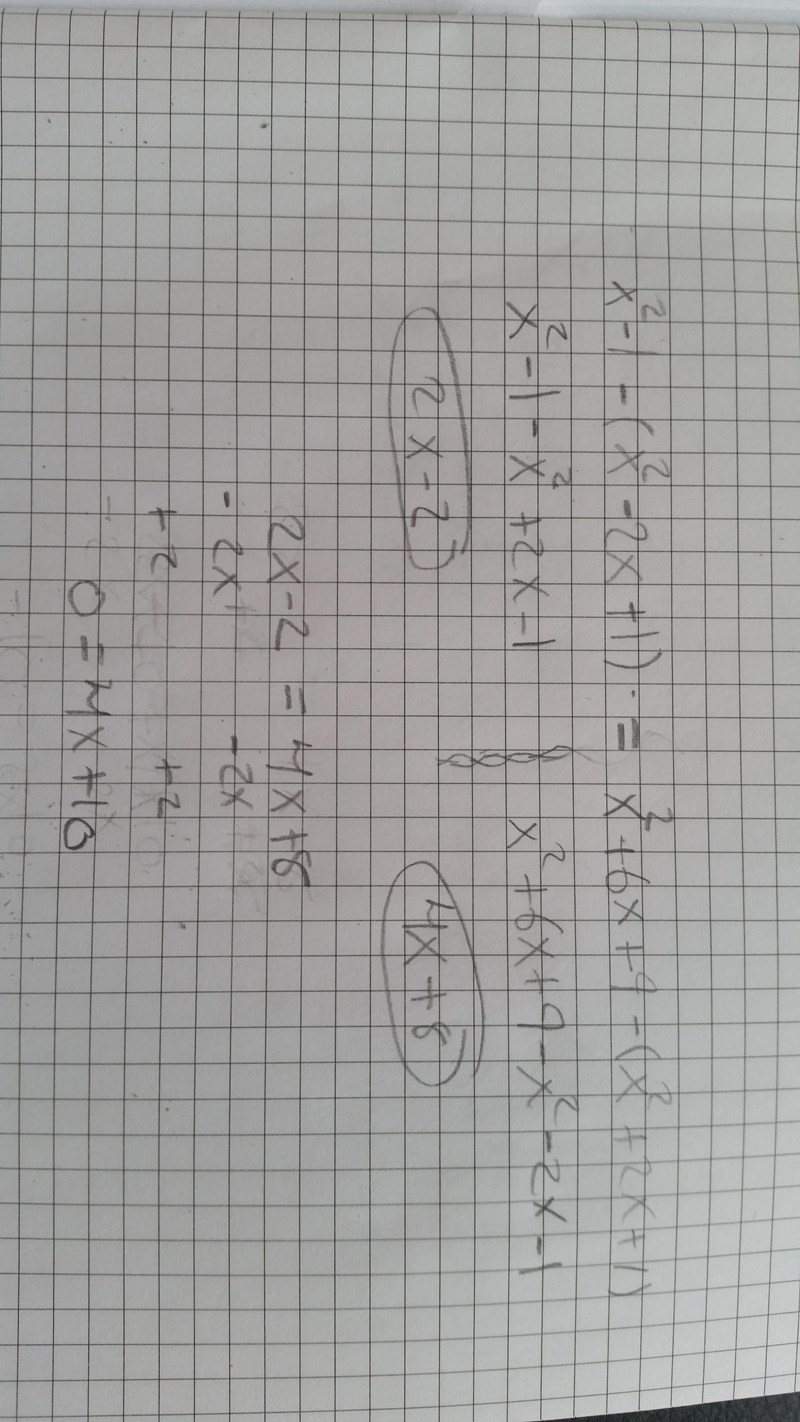 x²-1-(x²-2x+1) = x²+6x+9-(x²+2x+1)
x²-1-x²+2x-1 x²+6x+9-x²-2x-1
2x-2 4x+8
2x-2 = 4x+8
-2x -2x
+2 +2
0=4x+10